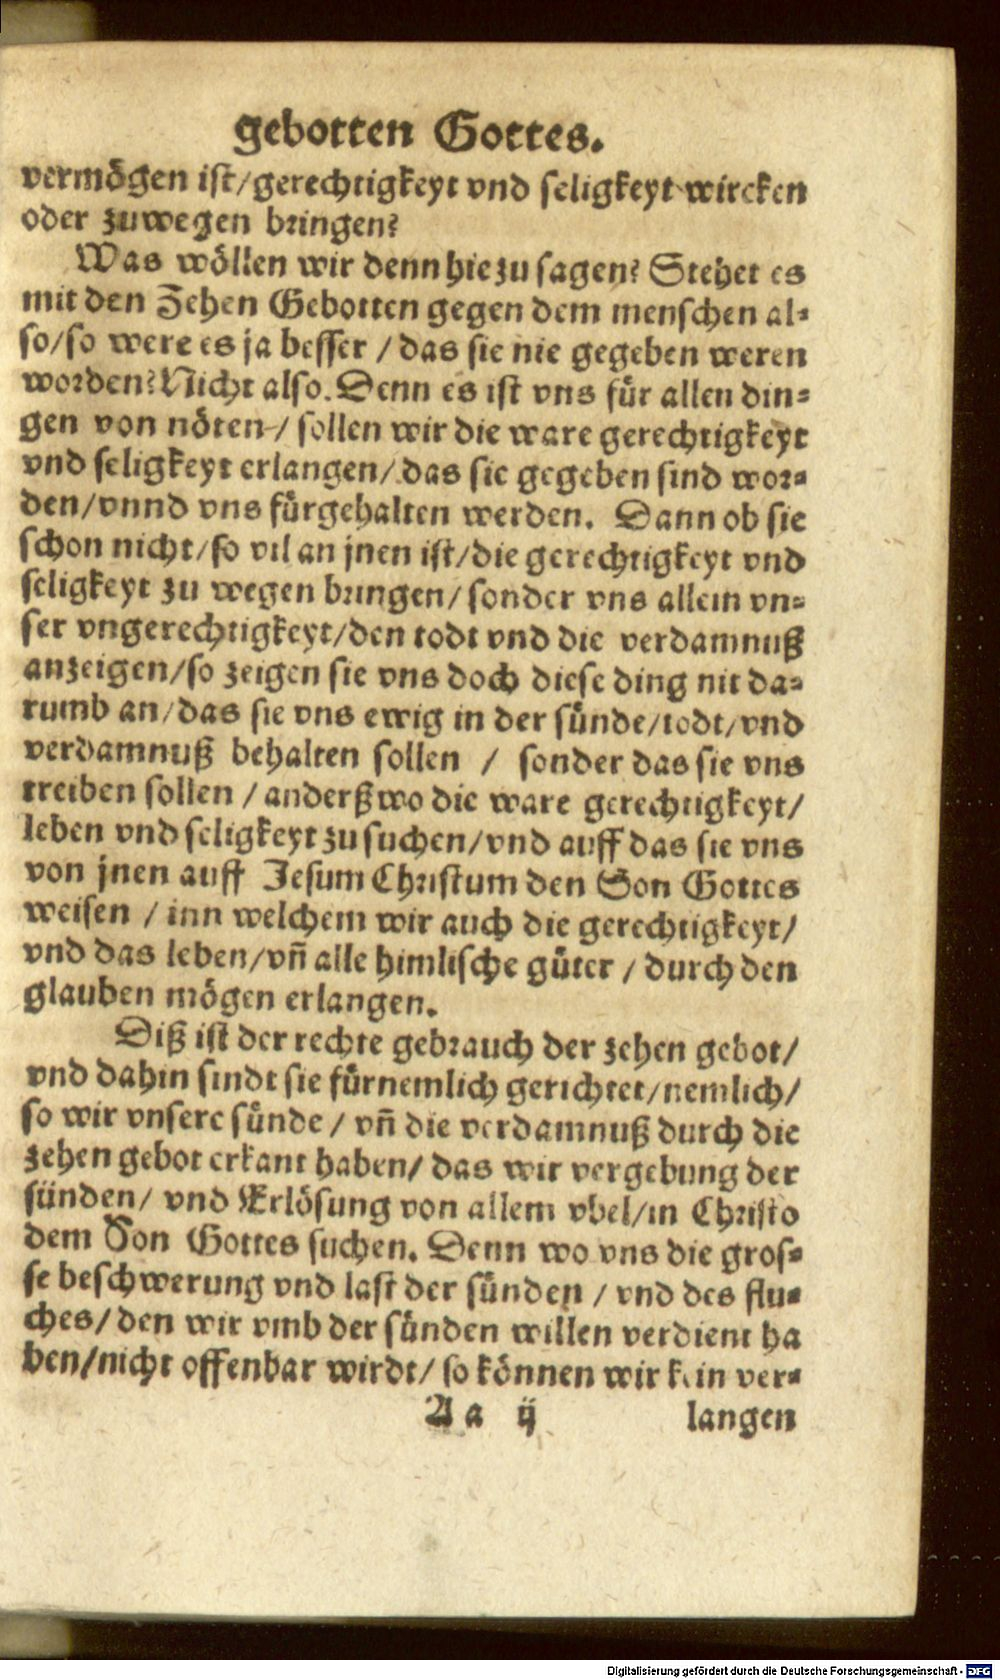 gebotten Gottes.
vermögen ist/gerechtigkeyt vnd seligkeyt wircken
oder zuwegen bringen?
Was wöllen wir denn hiezu sagen? Stehet es
mit den Zehen Gebotten gegen dem menschen al-
so/so were es ja besser / das sie nie gegeben weren
worden? Nicht also. Denn es ist vns für allen din-
gen von nöten / sollen wir die ware gerechtigkeyt
vnd seligkeyt erlangen/ das sie gegeben sind wor-
den/vnnd vns fürgehalten werden. Dann ob sie
schon nicht/so vil an jnen ist/die gerechtigkeyt vnd
seligkeyt zu wegen bringen/ sonder vns allein vn-
ser vngerechtigkeyt/den todt vnd die verdamnuß
anzeigen/so zeigen sie vns doch diese ding nit da-
rumb an/das sie vns ewig in der sünde/todt/vnd
verdamnuß behalten sollen / sonder das sie vns
treiben sollen / anderßwo die ware gerechtigkeyt/
leben vnd seligkeyt zu suchen/vnd auff das sie vns
von jnen auff Jesum Christum den Son Gottes
weisen / inn welchem wir auch die gerechtigkeyt/
vnd das leben/vñ alle himlische güter / durch den
glauben mögen erlangen.
Diß ist der rechte gebrauch der zehen gebot/
vnd dahin sindt sie fürnemlich gerichtet/nemlich/
so wir vnsere sünde / vñ die verdamnuß durch die
zehen gebot erkant haben/ das wir vergebung der
sünden/ vnd Erlösung von allem vbel/in Christo
dem Son Gottes suchen. Denn wo vns die gros-
se beschwerung vnd last der sünden / vnd des flu-
ches/ den wir vmb der sünden willen verdient ha
ben/nicht offenbar wirdt/ so können wir kein ver-
Aa ij langen
Digitalisierung gefördert durch die Deutsche Forschungsgemeinschaft - DFG